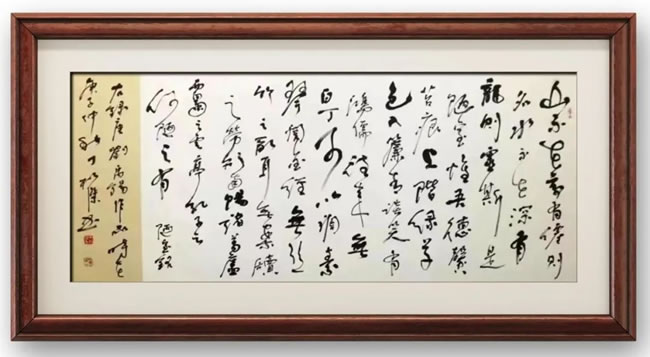 山不在高有仙则
名水不在深有
龍则靈斯是
陋室惟吾德馨
苔痕上階绿草
色入簾青谈笑有
鸿儒往来無
白丁可以调素
琴阅金经無丝
竹之乱耳無案牍
之劳形南陽诸葛廬
西蜀子云亭孔子云
何陋之有 陋室铭
右録唐劉禹锡作品时在
庚子仲秋